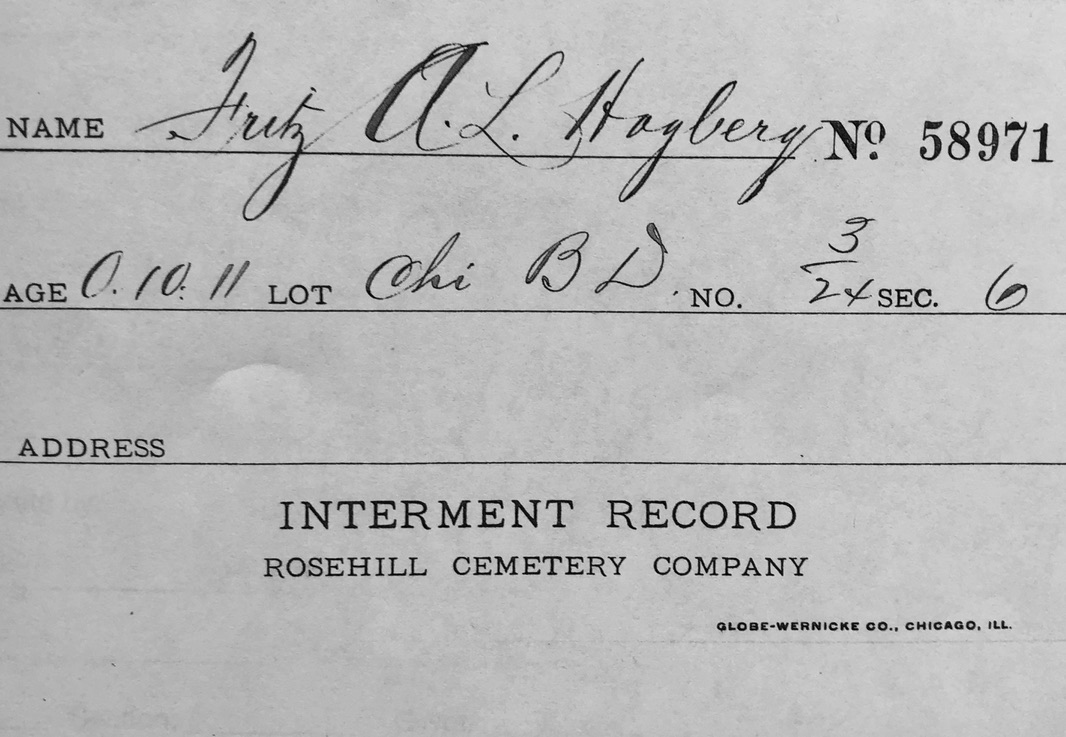 NAME Fritz A. L. Hogberg No 58971
AGE 0. 10. 11 LOT Chi B D. NO. 3/24 SEC. 6
ADDRESS
INTERMENT RECORD
ROSEHILL CEMETERY COMPANY
GLOBE-WERNICKE CO., CHICAGO, ILL.